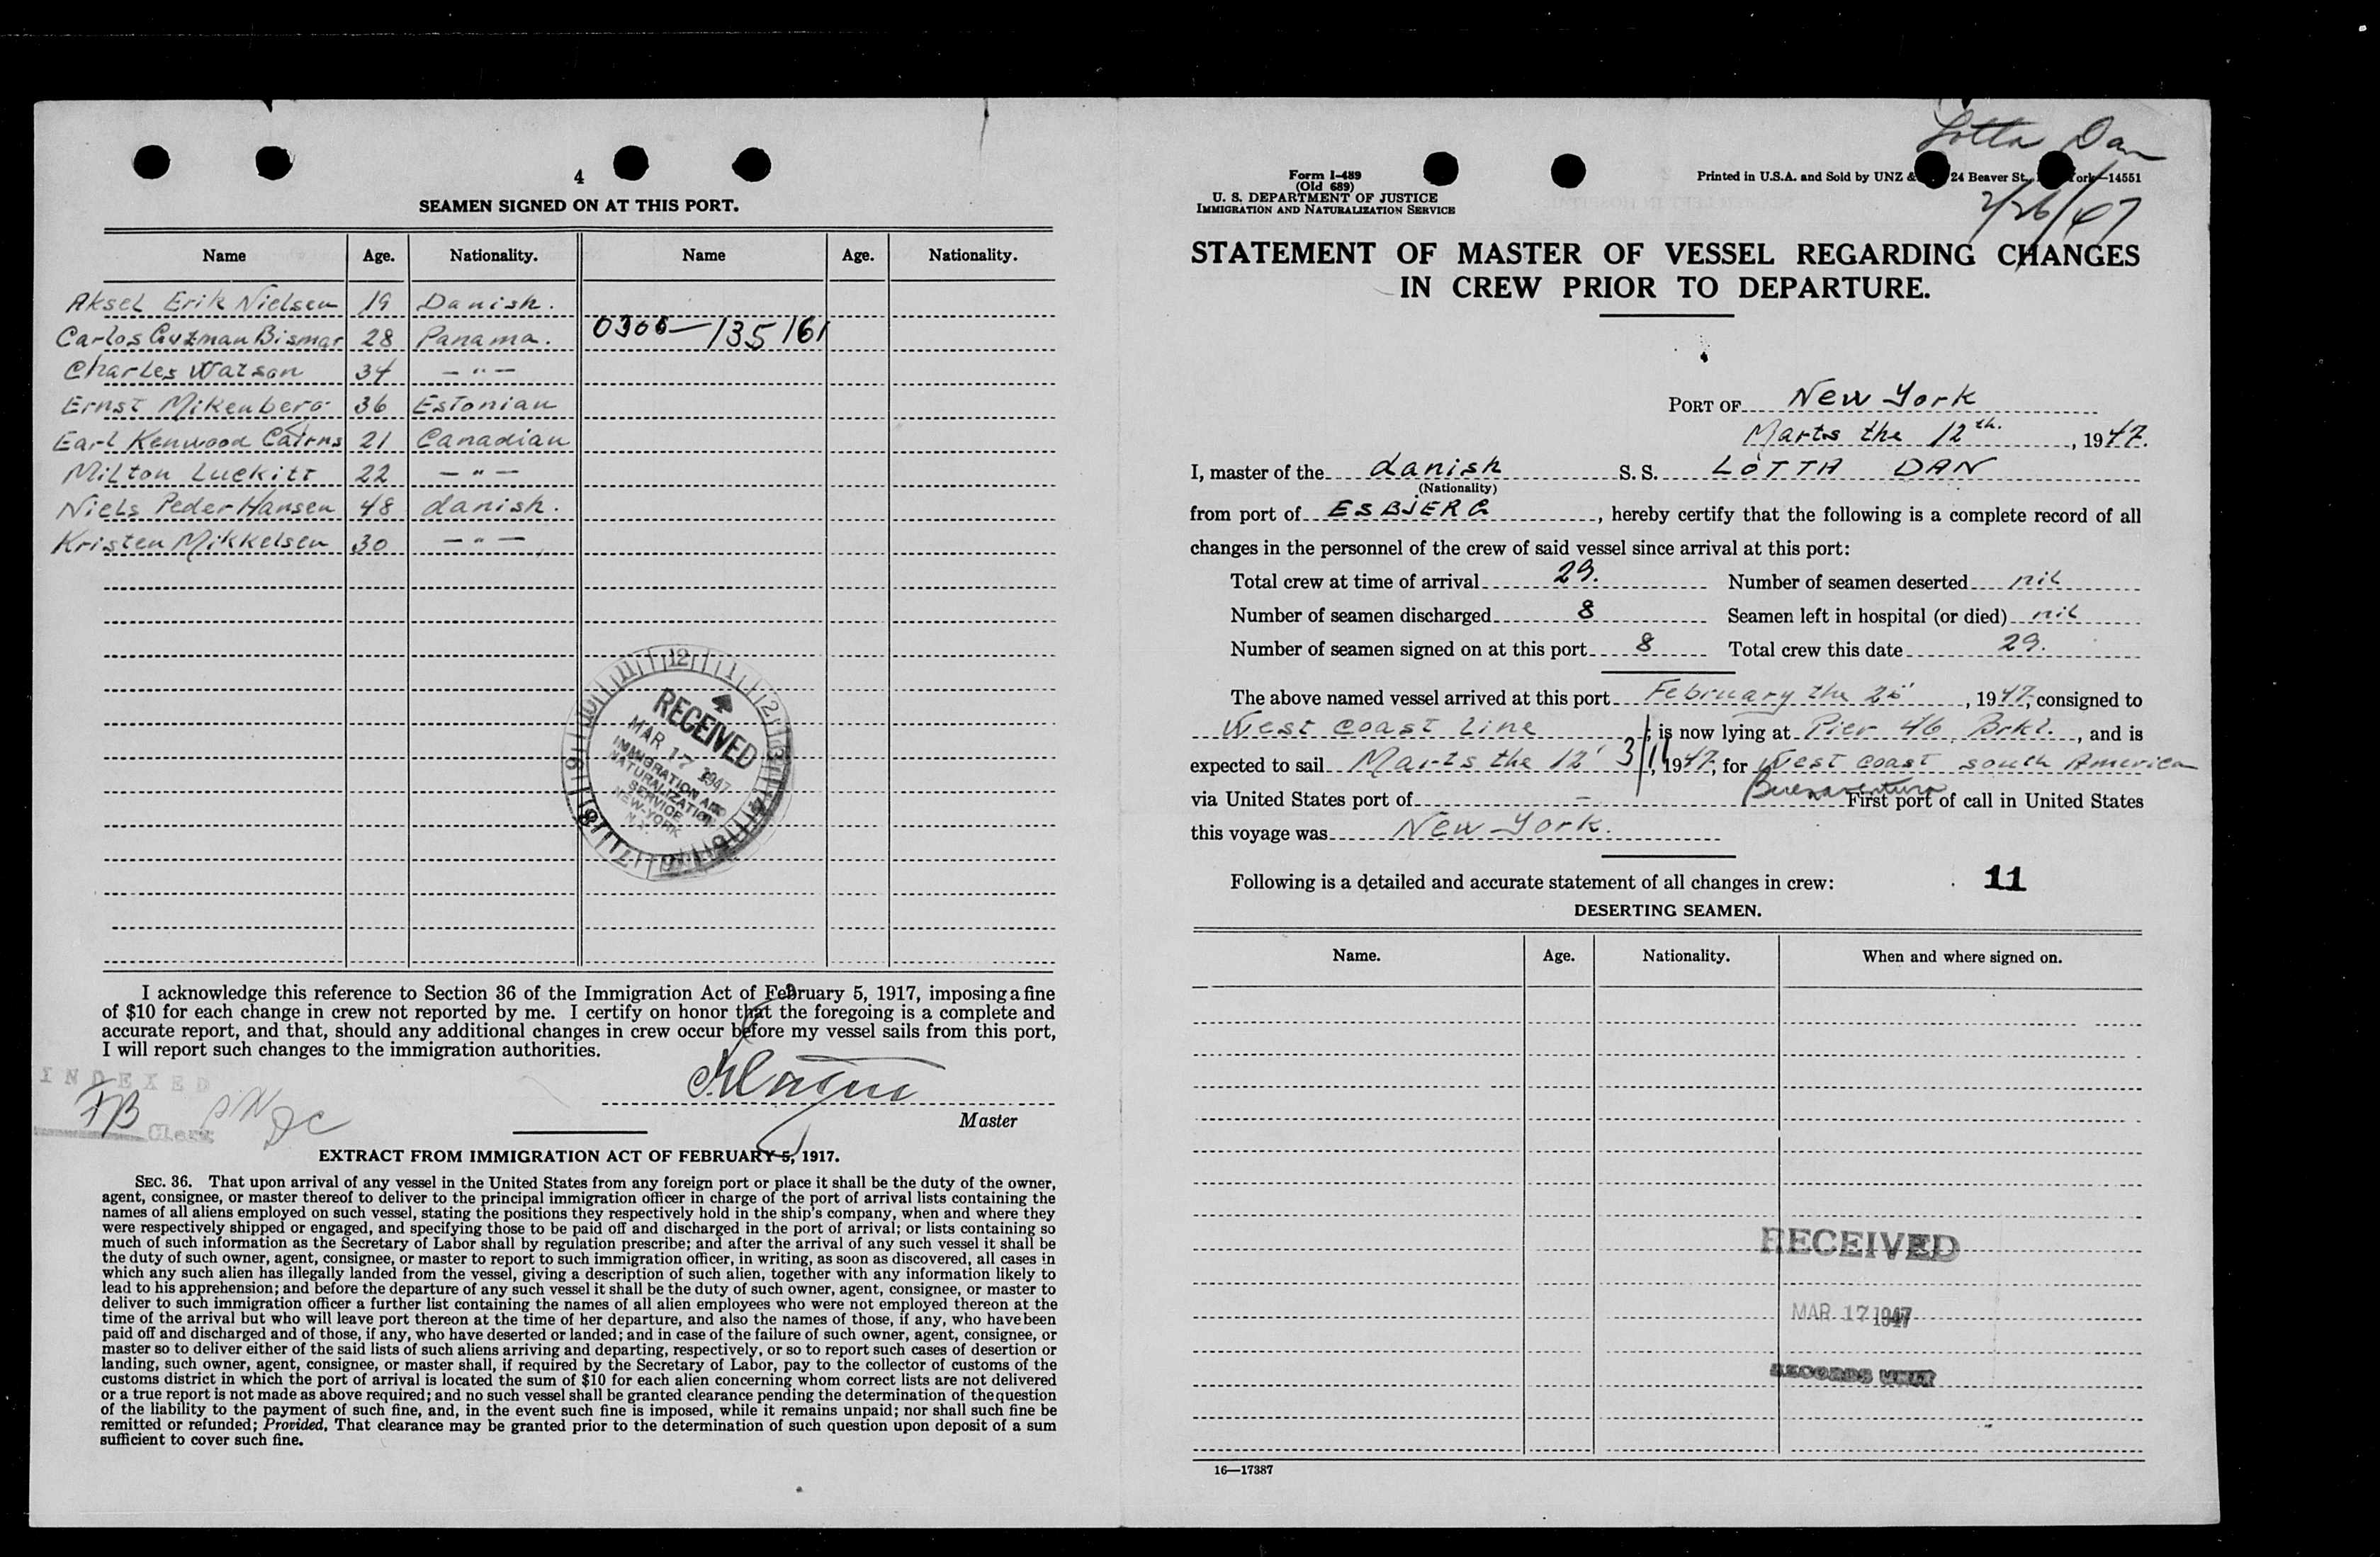 4
SEAMEN SIGNED ON AT THIS PORT.
Name Age. Nationality. Name Age. Nationality.
Aksel Erik Nielsen 19 Danish.
Carlos Guzman Bismar 28 Panama. 0300-135161
Charles Watson 34 — " —
Ernst Mikenberg 36 Estonian
Earl Kenwood Cairns 21 Canadian
Milton Luckitt 22 — " —
Niels Peder Hansen 48 danish.
Kristen Mikkelsen 30 — " —
RECEIVED
MAR 17 1947
IMMIGRATION AND
NATURALIZATION
SERVICE
NEW-YORK
N.Y.
I acknowledge this reference to Section 36 of the Immigration Act of February 5, 1917, imposing a fine
of $10 for each change in crew not reported by me. I certify on honor that the foregoing is a complete and
accurate report, and that, should any additional changes in crew occur before my vessel sails from this port,
I will report such changes to the immigration authorities.
INDEXED
FB
Clerk
Master
EXTRACT FROM IMMIGRATION ACT OF FEBRUARY 5, 1917.
SEC. 36. That upon arrival of any vessel in the United States from any foreign port or place it shall be the duty of the owner,
agent, consignee, or master thereof to deliver to the principal immigration officer in charge of the port of arrival lists containing the
names of all aliens employed on such vessel, stating the positions they respectively hold in the ship's company, when and where they
were respectively shipped or engaged, and specifying those to be paid off and discharged in the port of arrival; or lists containing so
much of such information as the Secretary of Labor shall by regulation prescribe; and after the arrival of any such vessel it shall be
the duty of such owner, agent, consignee, or master to report to such immigration officer, in writing, as soon as discovered, all cases in
which any such alien has illegally landed from the vessel, giving a description of such alien, together with any information likely to
lead to his apprehension; and before the departure of any such vessel it shall be the duty of such owner, agent, consignee, or master to
deliver to such immigration officer a further list containing the names of all alien employees who were not employed thereon at the
time of the arrival but who will leave port thereon at the time of her departure, and also the names of those, if any, who have been
paid off and discharged and of those, if any, who have deserted or landed; and in case of the failure of such owner, agent, consignee, or
master so to deliver either of the said lists of such aliens arriving and departing, respectively, or so to report such cases of desertion or
landing, such owner, agent, consignee, or master shall, if required by the Secretary of Labor, pay to the collector of customs of the
customs district in which the port of arrival is located the sum of $10 for each alien concerning whom correct lists are not delivered
or a true report is not made as above required; and no such vessel shall be granted clearance pending the determination of the question
of the liability to the payment of such fine, and, in the event such fine is imposed, while it remains unpaid; nor shall such fine be
remitted or refunded; Provided, That clearance may be granted prior to the determination of such question upon deposit of a sum
sufficient to cover such fine.
Lotta Dan
2/26/47
Form I-489
(Old 689)
U. S. DEPARTMENT OF JUSTICE
IMMIGRATION AND NATURALIZATION SERVICE
Printed in U.S.A. and Sold by UNZ & 24 Beaver St., York—14551
STATEMENT OF MASTER OF VESSEL REGARDING CHANGES
IN CREW PRIOR TO DEPARTURE.
PORT OF New York
Marts the 12th., 1947.
I, master of the danish S. S. LOTTA DAN
(Nationality)
from port of ESBJERG, hereby certify that the following is a complete record of all
changes in the personnel of the crew of said vessel since arrival at this port:
Total crew at time of arrival 29. Number of seamen deserted nil
Number of seamen discharged 8 Seamen left in hospital (or died) nil
Number of seamen signed on at this port 8 Total crew this date 29.
The above named vessel arrived at this port February the 26', 1947, consigned to
West coast Line; is now lying at Pier 46, Brkl., and is
expected to sail Marts the 12' 3/14, 1947, for West coast south America
Buenaventura
via United States port of - First port of call in United States
this voyage was New York.
Following is a detailed and accurate statement of all changes in crew: 11
DESERTING SEAMEN.
Name. Age. Nationality. When and where signed on.
RECEIVED
MAR 17 1947
RECORDS UNIT
16—17387